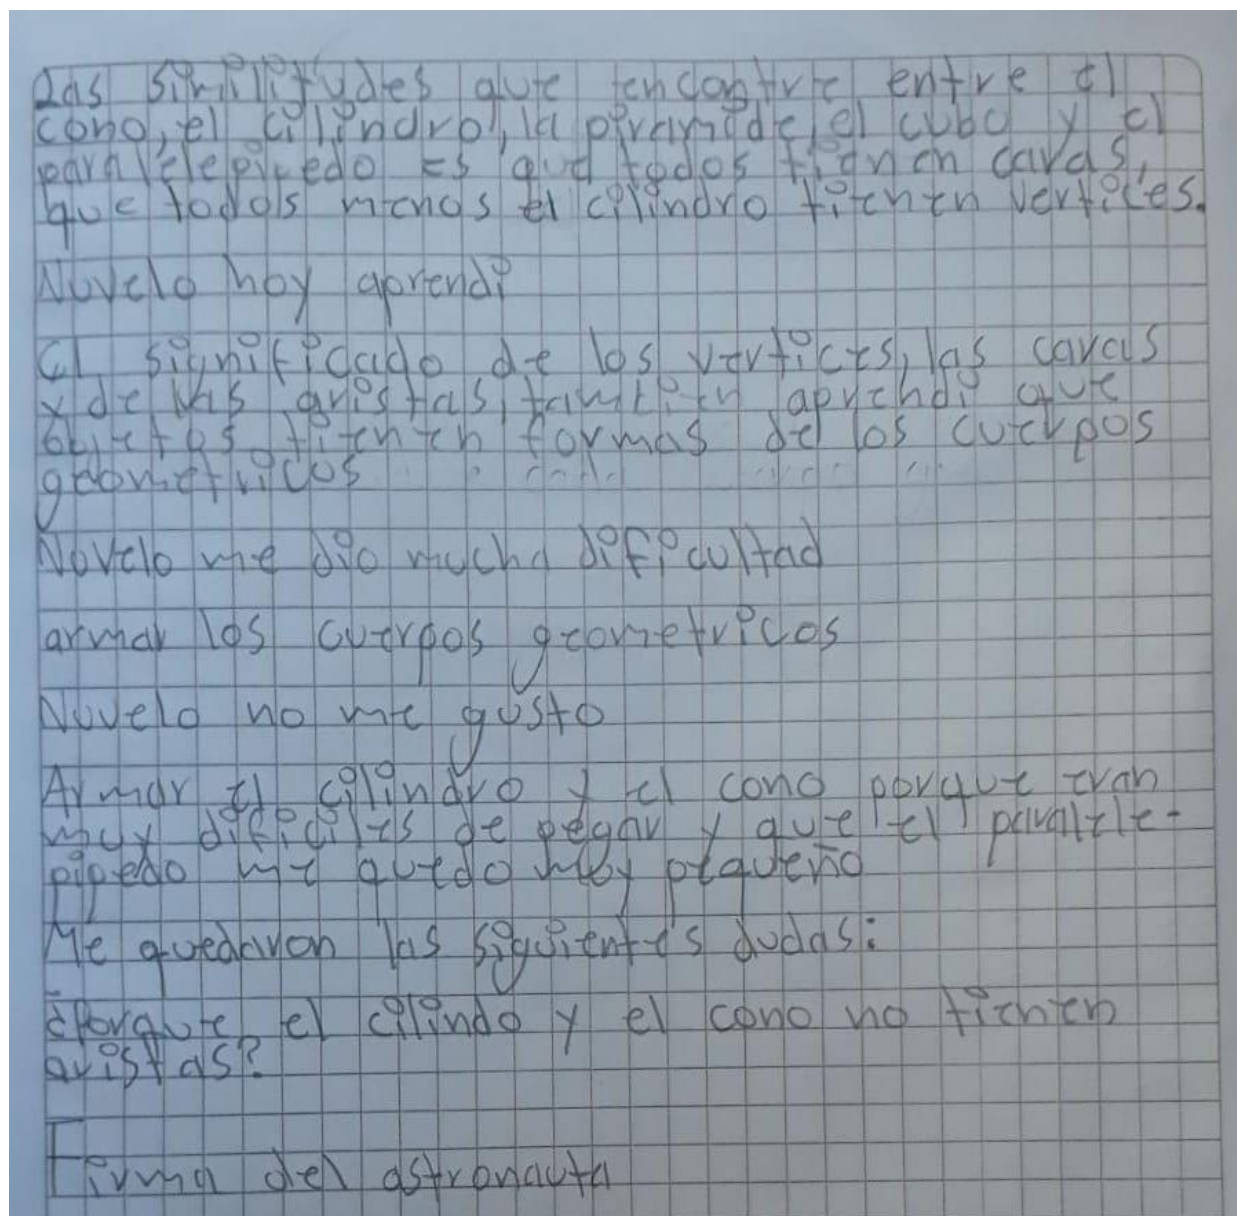 Las similitudes que encontre entre el
cono, el cilindro, la piramide, el cubo y el
paralelepipedo es que todos tienen caras,
que todos menos el cilindro tienen vertices.
Novelo hoy aprendi
el significado de los vertices, las caras
y de las aristas, tambien aprendi que
objetos tienen formas de los cuerpos
geometricos
Novelo me dio mucha dificultad
armar los cuerpos geometricos
Novelo no me gusto
Armar el cilindro y el cono porque eran
muy dificiles de pegar y que el paralele-
pipedo me quedo muy pequeño
Me quedaron las siguientes dudas:
¿Porque el cilindo y el cono no tienen
aristas?
Firma del astronauta